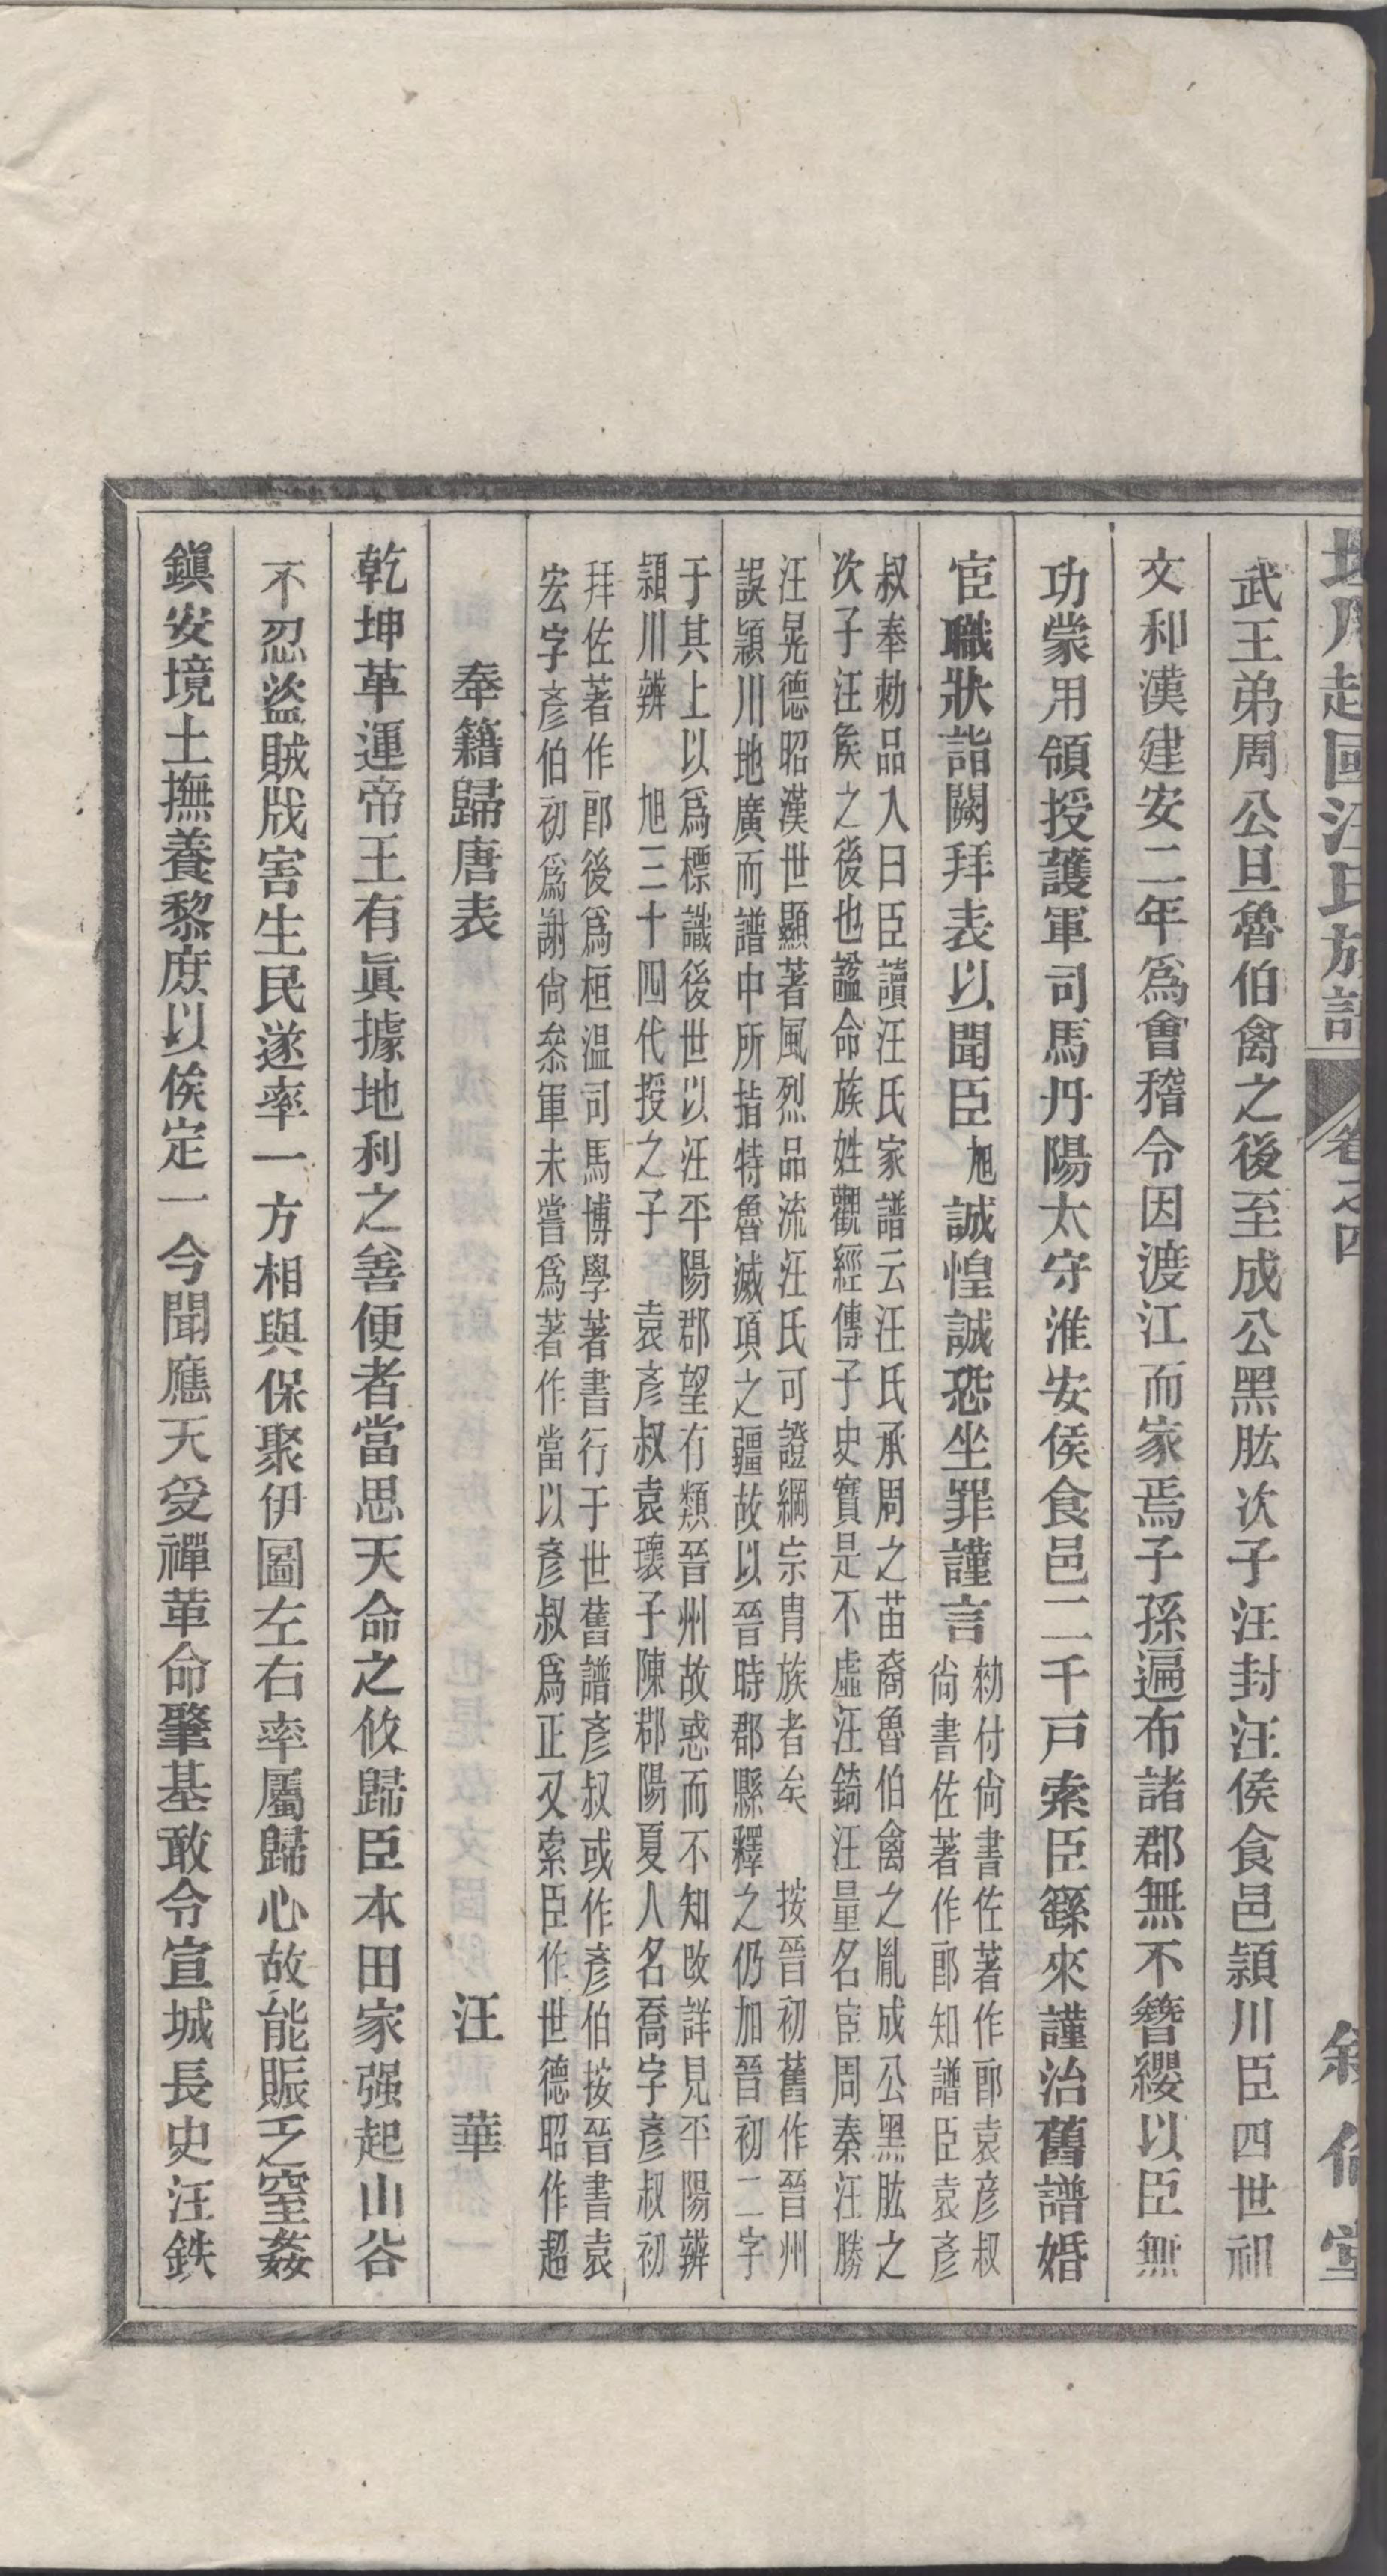 越國汪氏族譜 卷之四 敘倫堂
武王弟周公旦魯伯禽之後至成公黑肱次子汪封汪侯食邑潁川臣四世祖
文和漢建安二年爲會稽令因渡江而家焉子孫遍布諸郡無不簪纓以臣無
功蒙用領授護軍司馬丹陽太守淮安侯食邑二千戸索臣繇來謹治舊譜婚
宦職狀詣闕拜表以聞臣旭誠惶誠恐坐罪謹言
勑付尙書佐著作郎袁彦叔
尙書佐著作郎知譜臣袁彦
叔奉勑品入曰臣讀汪氏家譜云汪氏承周之苗裔魯伯禽之胤成公黑肱之
次子汪矦之後也謚命族姓觀經傳子史實是不虛汪錡汪量名宦周秦汪勝
汪晃德昭漢世顯著風烈品流汪氏可證綱宗胄族者矣 按晉初舊作晉州
誤潁川地廣而譜中所指特魯滅項之疆故以晉時郡縣釋之仍加晉初二字
于其上以爲標識後世以汪平陽郡望有類晉州故惑而不知改詳見平陽辨
潁川辨 旭三十四代授之子 袁彦叔袁瓌子陳郡陽夏人名喬字彦叔初
拜佐著作郎後爲桓温司馬博學著書行于世舊譜彦叔或作彦伯按晉書袁
宏字彦伯初爲謝尙叅軍未嘗爲著作當以彦叔爲正又索臣作世德昭作超
奉籍歸唐表 汪華
乾坤革運帝王有眞據地利之善便者當思天命之攸歸臣本田家强起山谷
不忍盜賊戕害生民遂率一方相與保聚伊圖左右率屬歸心故能賑乏窒姦
鎭安境土撫養黎庶以俟定一今聞應天受禪革命肇基敢令宣城長史汪鉄